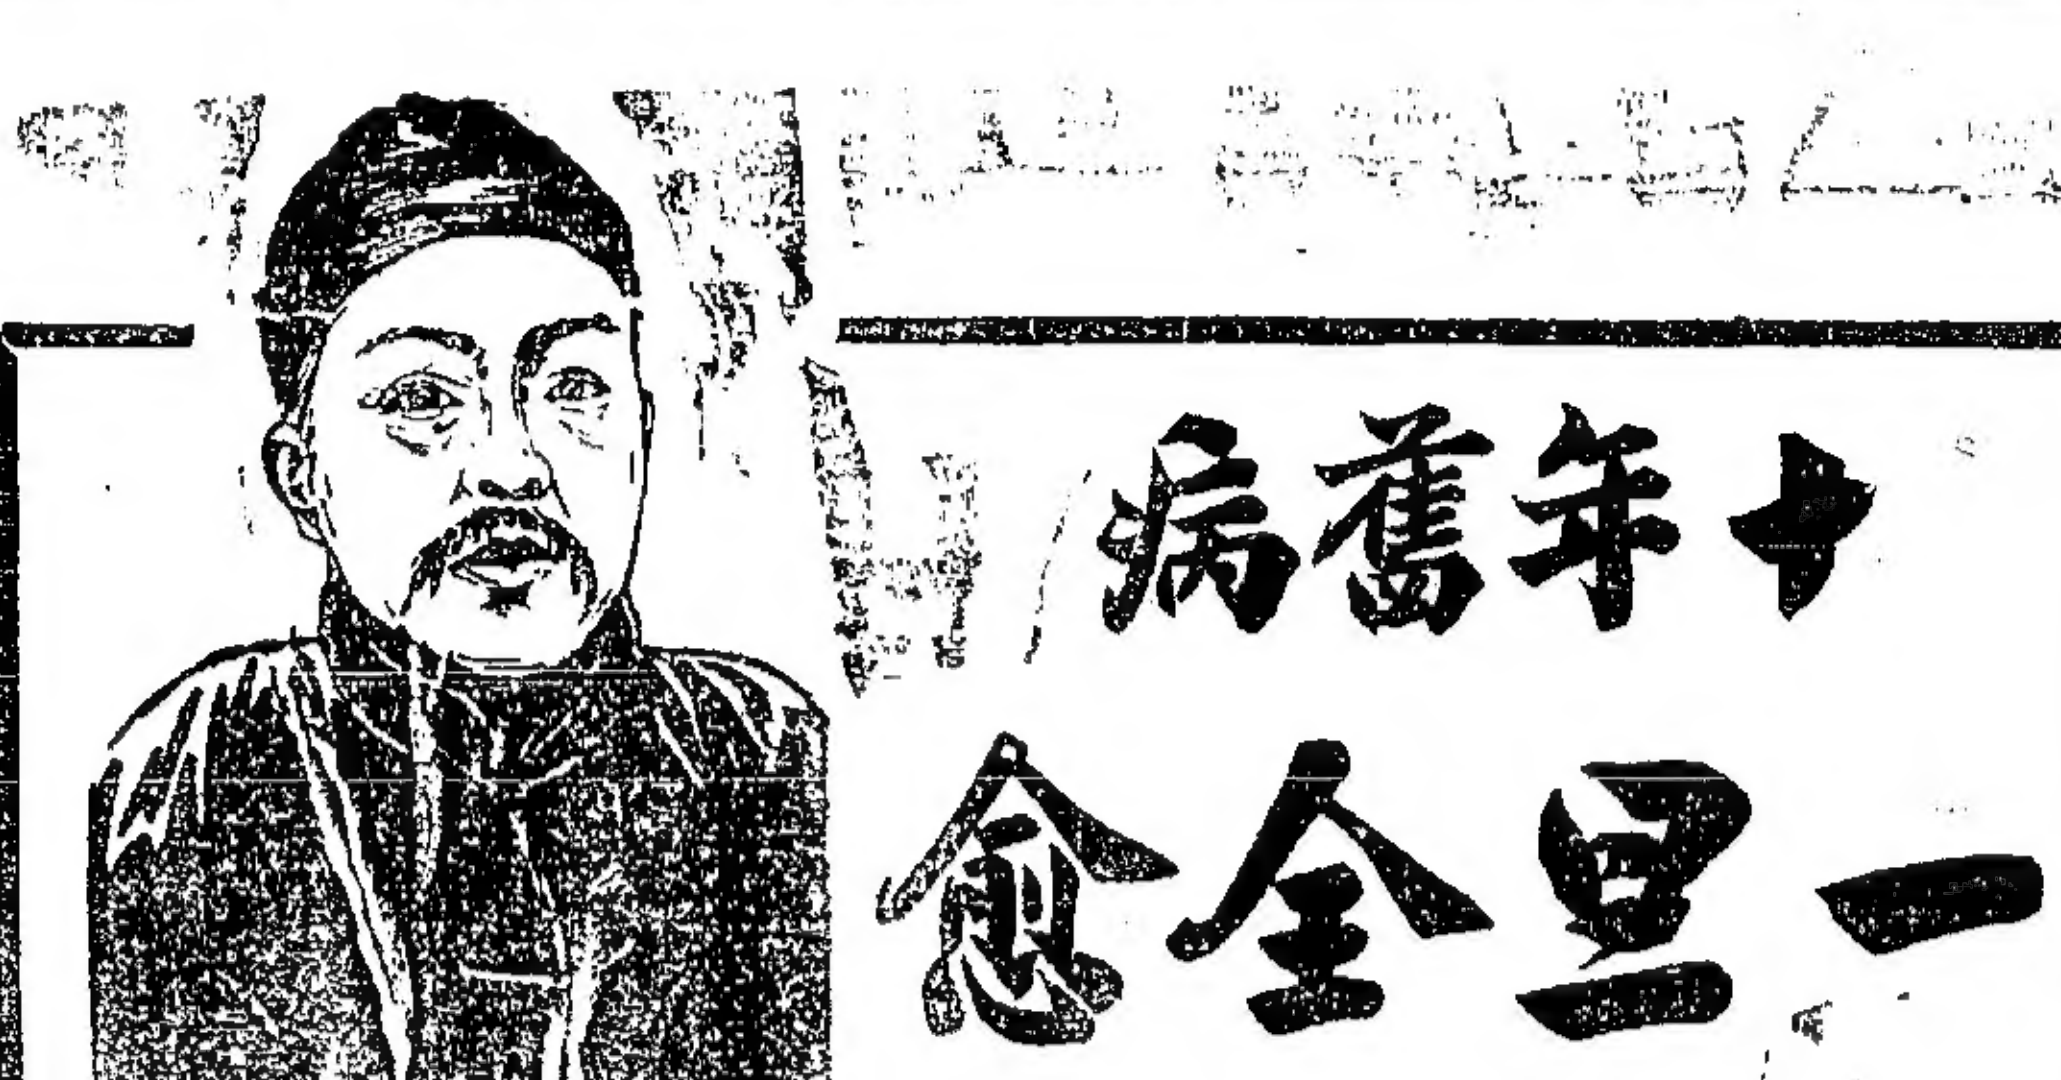 十年舊病
一旦全愈